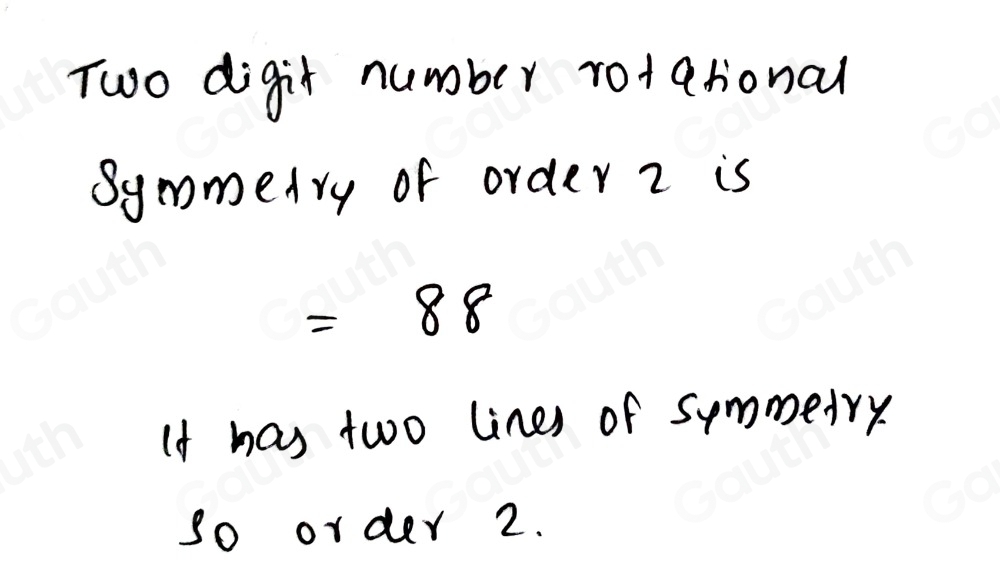 Two digit number rotational
Symmetry of order 2 is
= 88
It has two lines of symmetry.
So order 2.